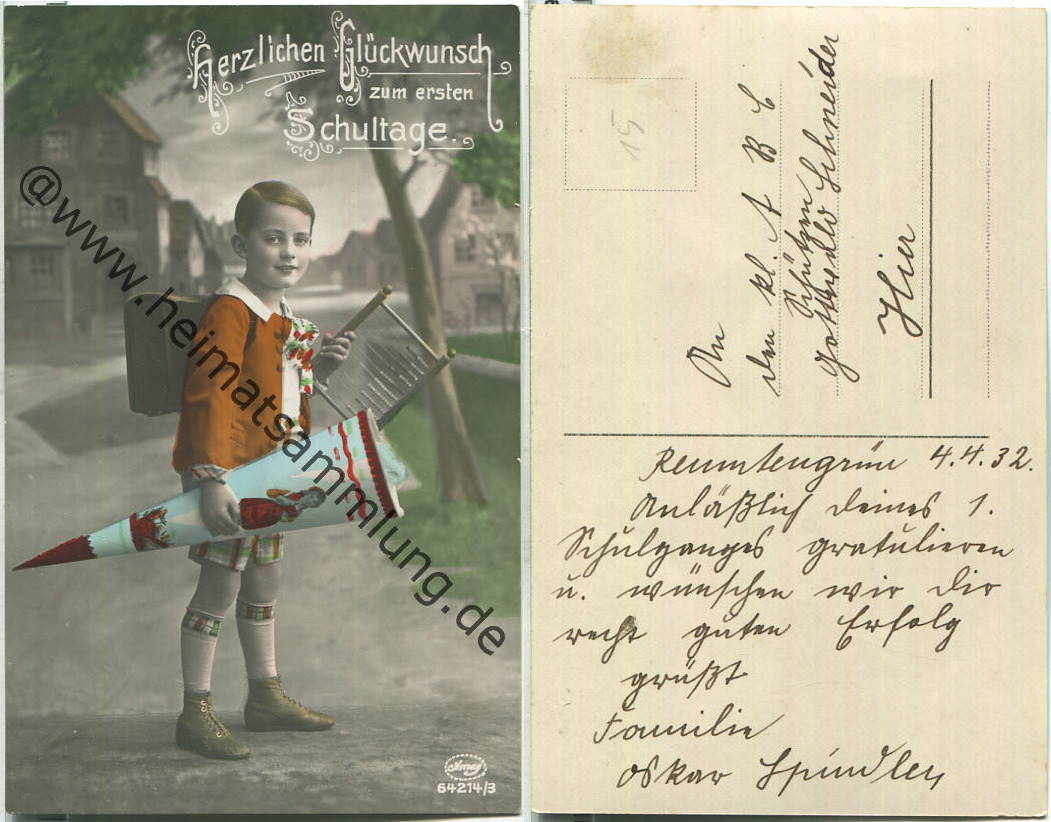 Herzlichen Glückwunsch
zum ersten
Schultage.
@www.heimatsammlung.de
Amag
64214/3
15
An
den kl. A B C
Schützen
Gotthold Schneider
Hier
Reumtengrün 4.4.32.
Anläßlich deines 1.
Schulganges gratulieren
u. wünschen wir Dir
recht guten Erfolg
grüßt
Familie
Oskar Spindler